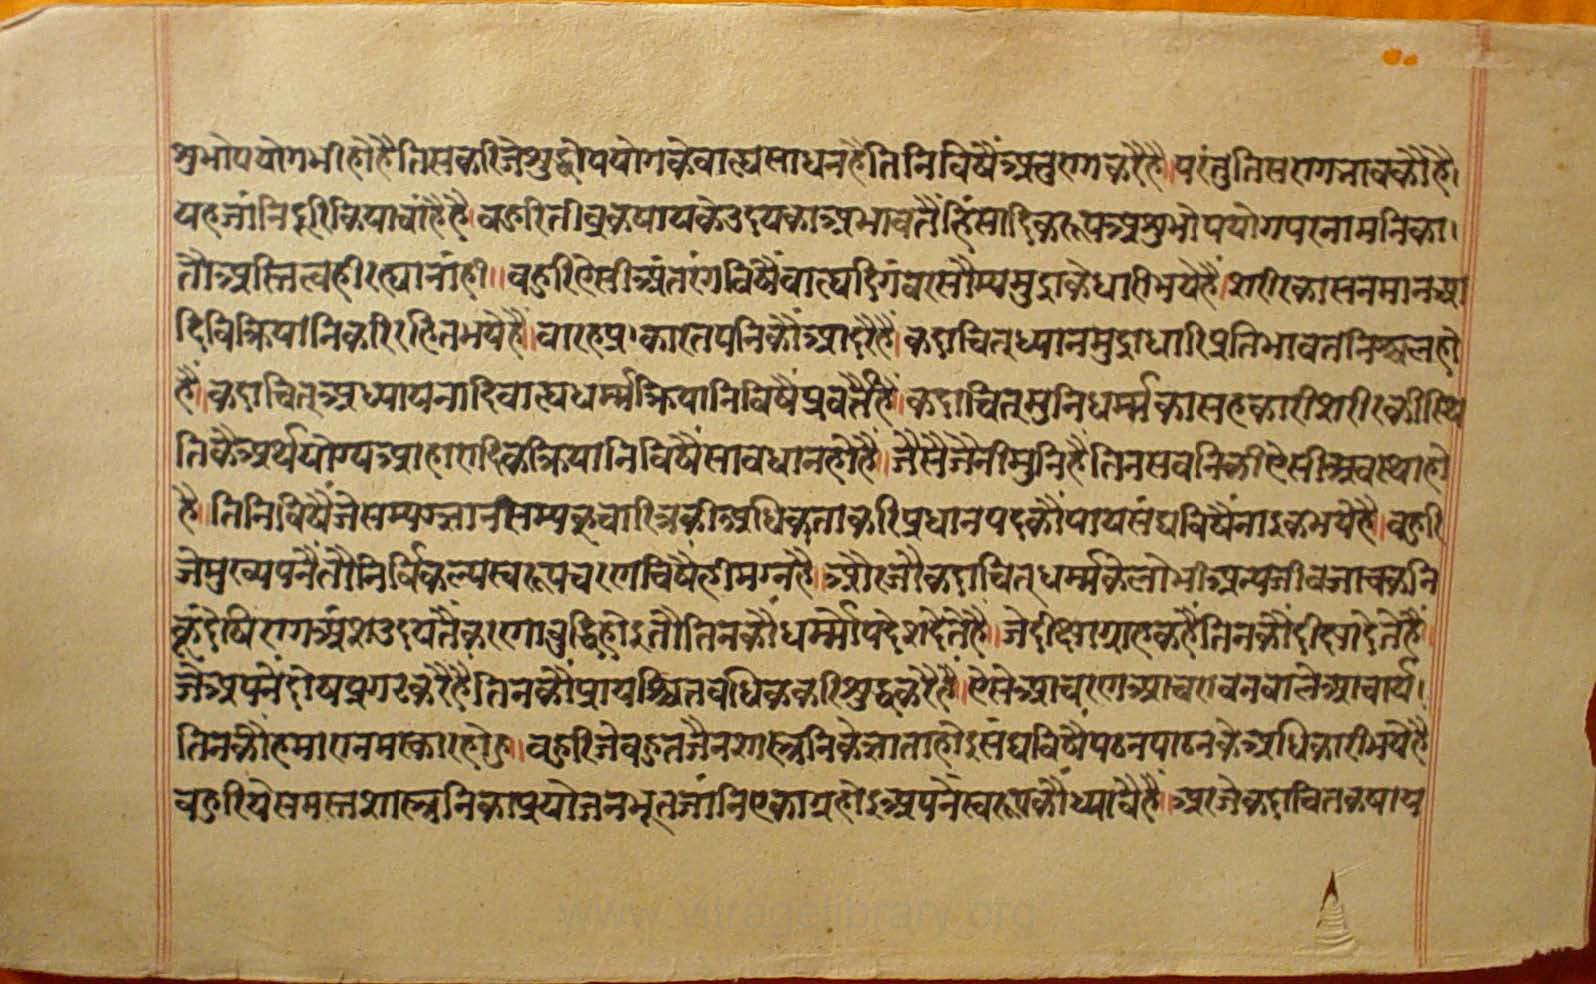 शुभोपयोगभीहोहैतिसकरिजेशुद्धोपयोगकेवाह्यसाधनहैतिनिविषैंअनुरागकरैहै।परंतुतिसरागभावकौंहै।
यहजांनिदूरिकियाचांहैहै।वहुरितीव्रकषायकेउदयकाअभावतैंहिंसादिकरूपअशुभोपयोगपरनामनिका।
तौअस्तित्वहीरह्यानांही॥वहुरिऐसीअंतरंगविषैंवाह्यदिगंवरसौम्यमुद्राकेधारीभयेहैं।शरीरकासनमानआ
दिविक्रियानिकरिरहितभयेहैं।वारहप्रकारतपनिकौंआदरैहैं।कदाचित्ध्यानमुद्राधारिप्रतिमावतनिश्चलहो
हैं।कदाचित्अध्यायनादिवाह्यधर्म्मक्रियानिविषैंप्रवर्तैहैं।कदाचित्मुनिधर्म्मकासहकारीशरीरकीस्थि
तिकैअर्थयोग्यआहारादिकक्रियानिविषैंसावधानहोहैं।जैसैजैनीमुनिहैंतिनसवनिकीऐसीअवस्थाहो
है।तिनिविषैंजेसम्यग्ज्ञानसम्यक्चारित्रकीअधिकताकरिप्रधानपदकौंपायसंघविषैंनाइकभयेहै।वहुरि
जेमुख्यपनैंतौनिर्विकल्पस्वरूपचरणविषैंहीमग्नहै।औरजौकदाचित्धर्म्मकेलोभीअन्यजीवजाचकनि
कूंदेषिरागअंशउदयतैंकरुणाबुद्धिहोइतौतिनकौंधर्म्मोपदेशदेतेहै।जेदीक्षाग्राहकहैंतिनकौंदीक्षादेतेहैं
जेअपनेंदोषप्रगटकरैहैंतिनकौंप्रायश्चितवधिककरिशुद्धकरैहैं।ऐसेआचरणआचरावनवालेआचार्य।
तिनकौंहमारानमस्कारहोहु।वहुरिजेवहुतजैनशास्त्रनिकेज्ञाताहोइसंघविषैंपठनपाठनकेअधिकारीभयेहै
वहुरियेसमस्तशास्त्रनिकाप्रयोजनभूतजांनिएकाग्रहोइअपनेंस्वरूपकौंध्यावैहैं।अरजेकदाचितकषाय
www.viragelibrary.org